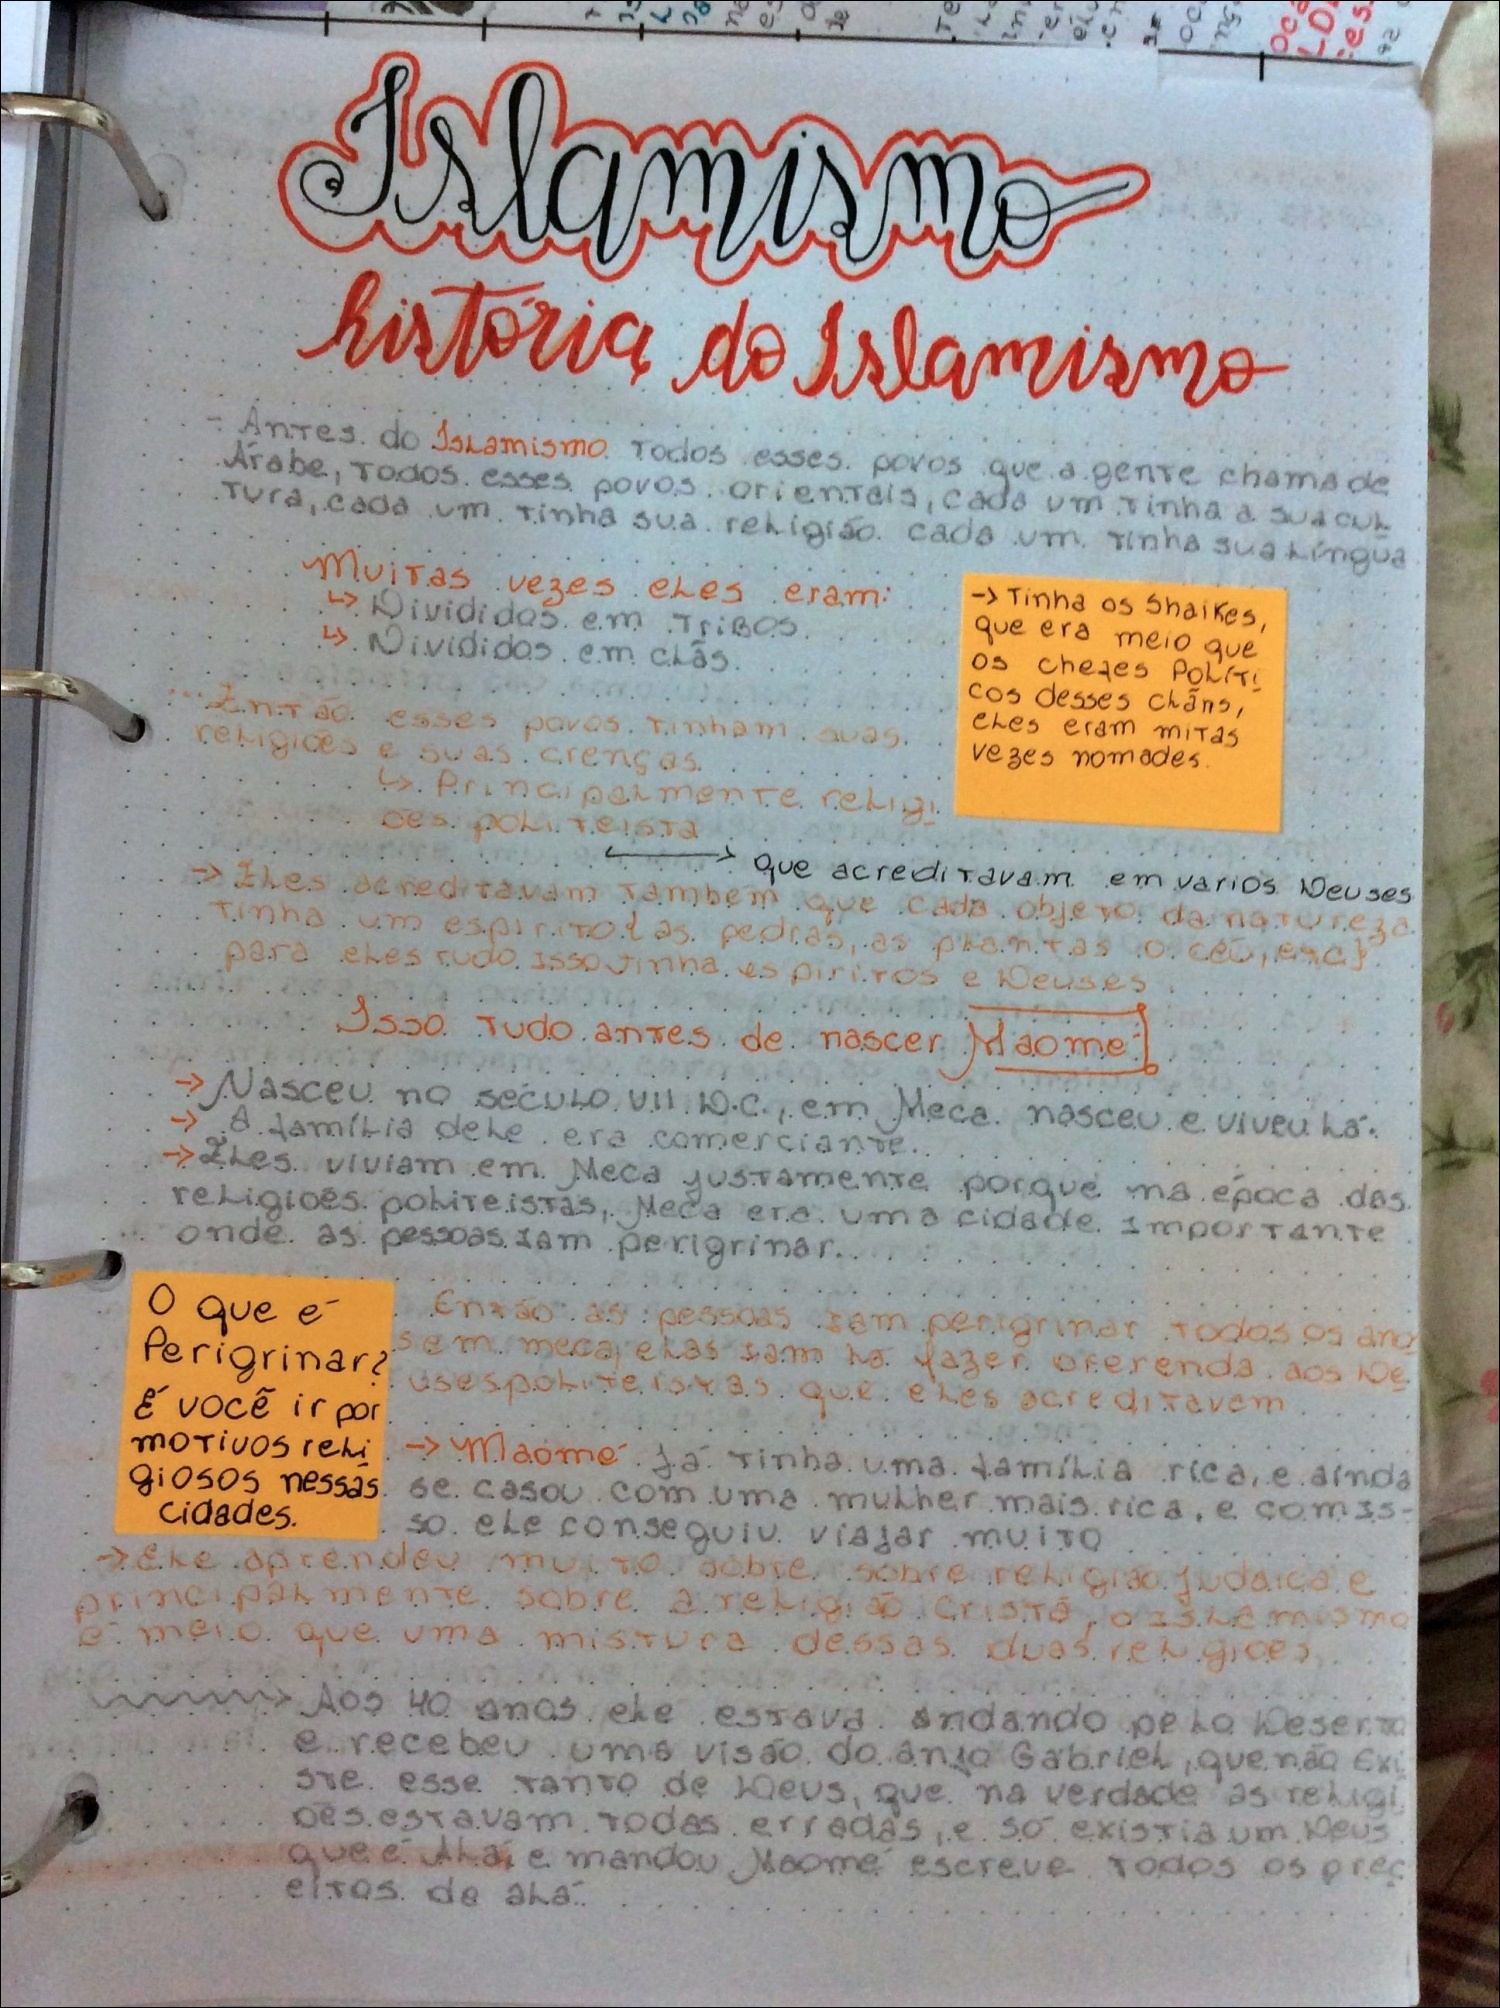 Islamismo
história do Islamismo
- Antes do Islamismo todos esses povos que a gente chama de
Árabe, todos esses povos orientais, cada um tinha a sua cul
tura, cada um tinha sua religião cada um tinha sua língua
Muitas vezes eles eram:
↳ Divididos em Tribos
↳ Divididos em clãs.
→ Tinha os Shaikes,
que era meio que
os chefes Políti
cos desses clãns,
eles eram mitas
vezes nomades.
Então esses povos tinham suas
religiões e suas crenças
↳ Principalmente religi
ões politeista
que acreditavam em varios Deuses
→ Eles acreditavam também que cada objeto da natureza
tinha um espirito {as pedras, as plantas o céu, etc}
para eles tudo isso tinha espiritos e Deuses
Isso tudo antes de nascer Maomé
→ Nasceu no século VII D.C., em Meca nasceu e viveu lá.
→ A família dele era comerciante.
→ Eles viviam em Meca justamente porque na época das
religiões politeistas, Meca era uma cidade importante
onde as pessoas iam perigrinar.
O que é
Perigrinar?
É você ir por
motivos reli
giosos nessas
cidades.
Então as pessoas iam perigrinar todos os ano
s em meca, elas iam lá fazer oferenda aos De
uses politeistas que eles acreditavam
→ Maomé já tinha uma família rica, e ainda
se casou com uma mulher mais rica, e com is-
so ele conseguiu viajar muito
→ Ele aprendeu muito sobre sobre religião judaica e
principalmente sobre a religião Cristã, o islamismo
é meio que uma mistura dessas duas religiões
Aos 40 anos ele estava andando pelo Deserto
e recebeu uma visão do anjo Gabriel, que não Exi
ste esse tanto de Deus, que na verdade as religi
ões estavam todas erradas, e só existia um Deus
que é Alá, e mandou Maomé escreve todos os prec
eitos de alá